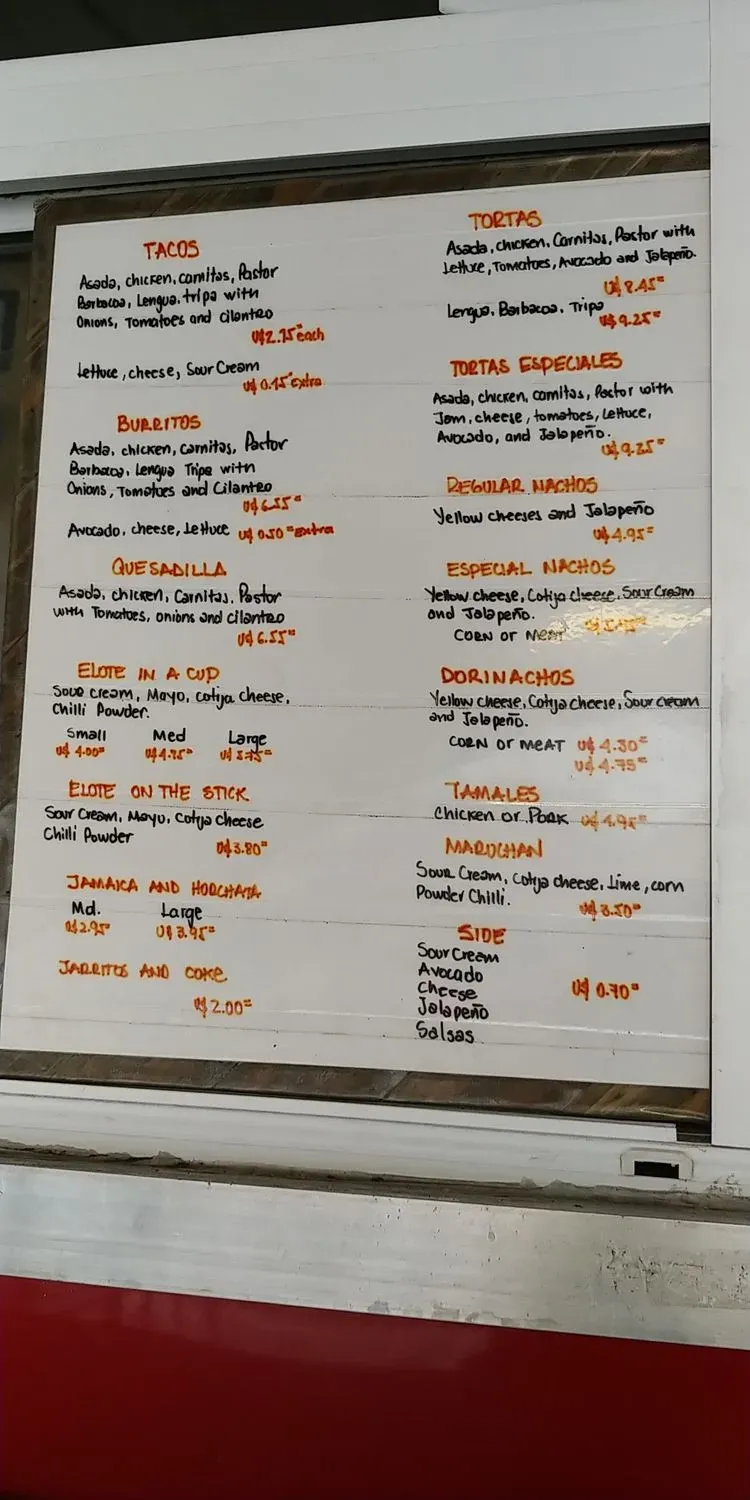 TACOS
Asada, chicken, carnitas, Pastor
Barbacoa, Lengua, tripa with
Onions, Tomatoes and cilantro
U$2.75 each
Lettuce, cheese, Sour Cream
U$ 0.45 Extra
BURRITOS
Asada, chicken, carnitas, Pastor
Barbacoa, Lengua Tripa with
Onions, Tomatoes and Cilantro
U$ 6.55
Avocado, cheese, Lettuce U$ 0.50 Extra
QUESADILLA
Asada, chicken, Carnitas, Pastor
with Tomatoes, onions and cilantro
U$ 6.55
ELOTE IN A CUP
Sour cream, Mayo, cotija cheese,
Chilli Powder.
Small Med Large
U$ 4.00 U$ 4.75 U$ 5.75
ELOTE ON THE STICK
Sour Cream, Mayo, Cotija Cheese
Chilli Powder
U$3.80
JAMAICA AND HORCHATA
Md. Large
U$2.95 U$ 3.95
JARRITOS AND COKE
U$ 2.00
TORTAS
Asada, chicken, Carnitas, Pastor with
Lettuce, Tomatoes, Avocado and Jalapeño.
U$ 8.45
Lengua, Barbacoa, Tripa
U$ 9.25
TORTAS ESPECIALES
Asada, chicken, carnitas, Pastor with
Jam, cheese, tomatoes, Lettuce,
Avocado, and Jalapeño.
U$ 9.25
REGULAR NACHOS
Yellow cheeses and Jalapeño
U$ 4.95
ESPECIAL NACHOS
Yellow cheese, Cotija cheese, Sour Cream
and Jalapeño.
CORN or MEAT
DORINACHOS
Yellow cheese, Cotija cheese, Sour cream
and Jalapeño.
CORN or MEAT U$ 4.30
U$ 4.75
TAMALES
Chicken or PORK U$ 4.95
MARUCHAN
Sour Cream, Cotija cheese, Lime, corn
Powder Chilli.
U$ 3.50
SIDE
Sour Cream
Avocado
Cheese U$ 0.70
Jalapeño
Salsas